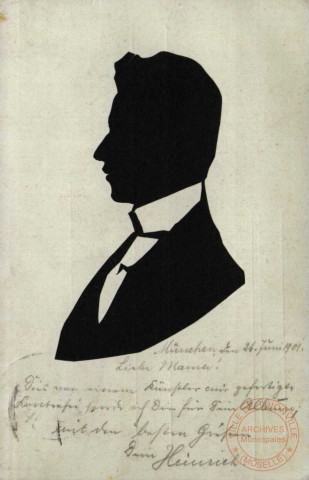 München, den 26. Juni 1901.
Liebe Mama!
Dies von einem Künstler mir gefertigte
Konterfei sende ich Dir für Dein Album
mit den besten Grüßen
Dein Heinrich
VILLE DE THIONVILLE
ARCHIVES
Municipales
(MOSELLE)